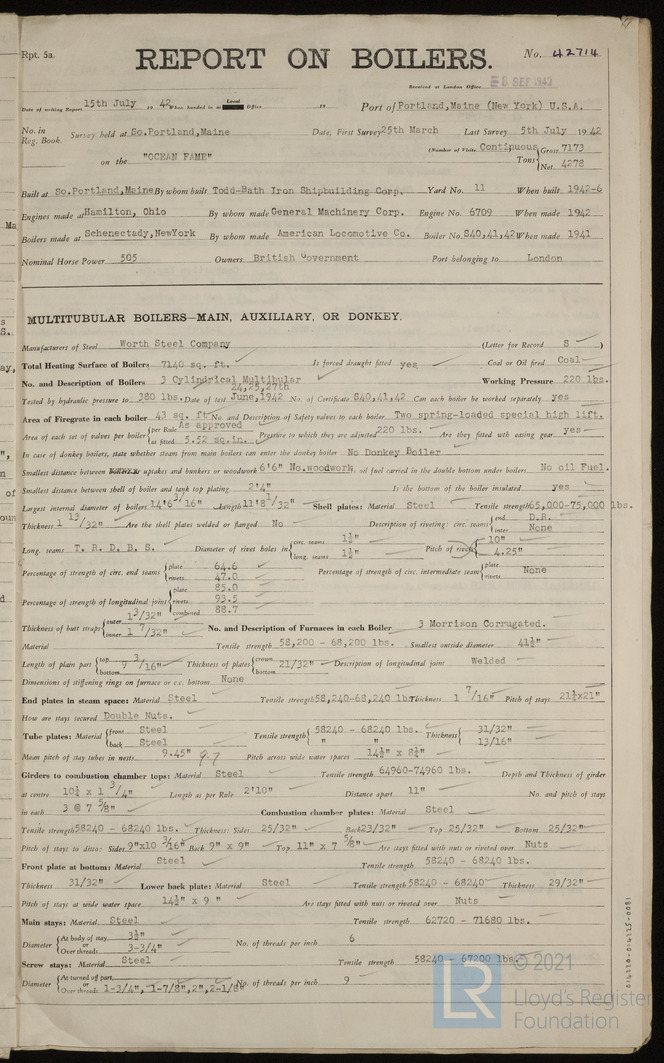 Rpt. 5a.
REPORT ON BOILERS.
No. 42714
Received at London Office 8 SEP 1942
Date of writing Report 15th July 19 42 When handed in at Local Office 19 Port of Portland, Maine (New York) U.S.A.
No. in Reg. Book. Survey held at So.Portland, Maine Date, First Survey 25th March Last Survey 5th July 1942
(Number of Visits Continuous
on the "OCEAN FAME" Tons { Gross 7173 Net 4278
Built at So.Portland, Maine By whom built Todd-Bath Iron Shipbuilding Corp. Yard No. 11 When built 1942-6
Engines made at Hamilton, Ohio By whom made General Machinery Corp. Engine No. 6709 When made 1942
Boilers made at Schenectady, NewYork By whom made American Locomotive Co. Boiler No. S40,41,42 When made 1941
Nominal Horse Power 505 Owners British Government Port belonging to London
MULTITUBULAR BOILERS—MAIN, AUXILIARY, OR DONKEY.
Manufacturers of Steel Worth Steel Company (Letter for Record S )
Total Heating Surface of Boilers 7140 sq. ft. Is forced draught fitted yes Coal or Oil fired Coal
No. and Description of Boilers 3 Cylindrical Multibular Working Pressure 220 lbs.
24,25,27th
Tested by hydraulic pressure to 380 lbs. Date of test June,1942 No. of Certificate S40,41,42 Can each boiler be worked separately yes
Area of Firegrate in each boiler 43 sq. ft. No. and Description of Safety valves to each boiler Two spring-loaded special high lift.
Area of each set of valves per boiler { per Rule As approved as fitted 5.52 sq.in. Pressure to which they are adjusted 220 lbs. Are they fitted with easing gear yes
In case of donkey boilers, state whether steam from main boilers can enter the donkey boiler No Donkey Boiler
Smallest distance between boilers or uptakes and bunkers or woodwork 6'6" No.woodwork. Is oil fuel carried in the double bottom under boilers No oil Fuel.
Smallest distance between shell of boiler and tank top plating 2'4" Is the bottom of the boiler insulated yes
Largest internal diameter of boilers 14'6 3/16" Length 11'8 1/32" Shell plates: Material Steel Tensile strength 65,000-75,000 lbs.
Thickness 1 13/32" Are the shell plates welded or flanged No Description of riveting: circ. seams { end D.R. inter. None
Long. seams T. R. D. B. S. Diameter of rivet holes in { circ. seams 1½" long. seams 1½" Pitch of rivets { 10" 4.25"
Percentage of strength of circ. end seams { plate 64.6 rivets 47.0 Percentage of strength of circ. intermediate seam { plate rivets None
Percentage of strength of longitudinal joint { plate 85.0 rivets 93.5 combined 88.7
Thickness of butt straps { outer 1 3/32" inner 1 7/32" No. and Description of Furnaces in each Boiler 3 Morrison Corrugated.
Material Tensile strength 58,200 - 68,200 lbs. Smallest outside diameter 41½"
Length of plain part { top bottom 9 3/16" Thickness of plates { crown bottom 21/32" Description of longitudinal joint Welded
Dimensions of stiffening rings on furnace or c.c. bottom None
End plates in steam space: Material Steel Tensile strength 58,240-68,240 lbs. Thickness 1 7/16" Pitch of stays 21½x21"
How are stays secured Double Nuts.
Tube plates: Material { front Steel back Steel Tensile strength { 58240 - 68240 lbs. " " Thickness { 31/32" 13/16"
Mean pitch of stay tubes in nests 9.45" 9.7 Pitch across wide water spaces 14½" x 8¼"
Girders to combustion chamber tops: Material Steel Tensile strength 64960-74960 lbs. Depth and Thickness of girder
at centre 10¼ x 1 3/4" Length as per Rule 2'10" Distance apart 11" No. and pitch of stays
in each 3 @ 7 5/8" Combustion chamber plates: Material Steel
Tensile strength 58240 - 68240 lbs. Thickness: Sides 25/32" Back 23/32" Top 25/32" Bottom 25/32"
Pitch of stays to ditto: Sides 9"x10 3/16" Back 9" x 9" Top 11" x 7 5/8" Are stays fitted with nuts or riveted over Nuts
Front plate at bottom: Material Steel Tensile strength 58240 - 68240 lbs.
Thickness 31/32" Lower back plate: Material Steel Tensile strength 58240 - 68240 Thickness 29/32"
Pitch of stays at wide water space 14½" x 9 " Are stays fitted with nuts or riveted over Nuts
Main stays: Material Steel Tensile strength 62720 - 71680 lbs.
Diameter { At body of stay 3½" or Over threads 3-3/4" No. of threads per inch 6
Screw stays: Material Steel Tensile strength 58240 - 67200 lbs.
Diameter { At turned off part or Over threads 1-3/4", 1-7/8", 2", 2-1/8" No. of threads per inch 9
© 2021
LR
Lloyd's Register
Foundation